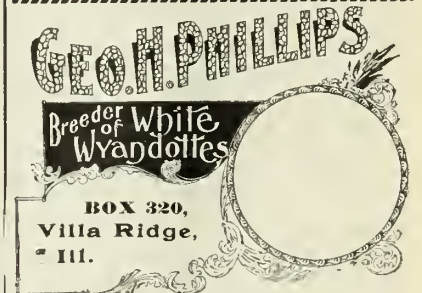 GEO.H.PHILLIPS
Breeder of White
Wyandottes
BOX 320,
Villa Ridge,
Ill.